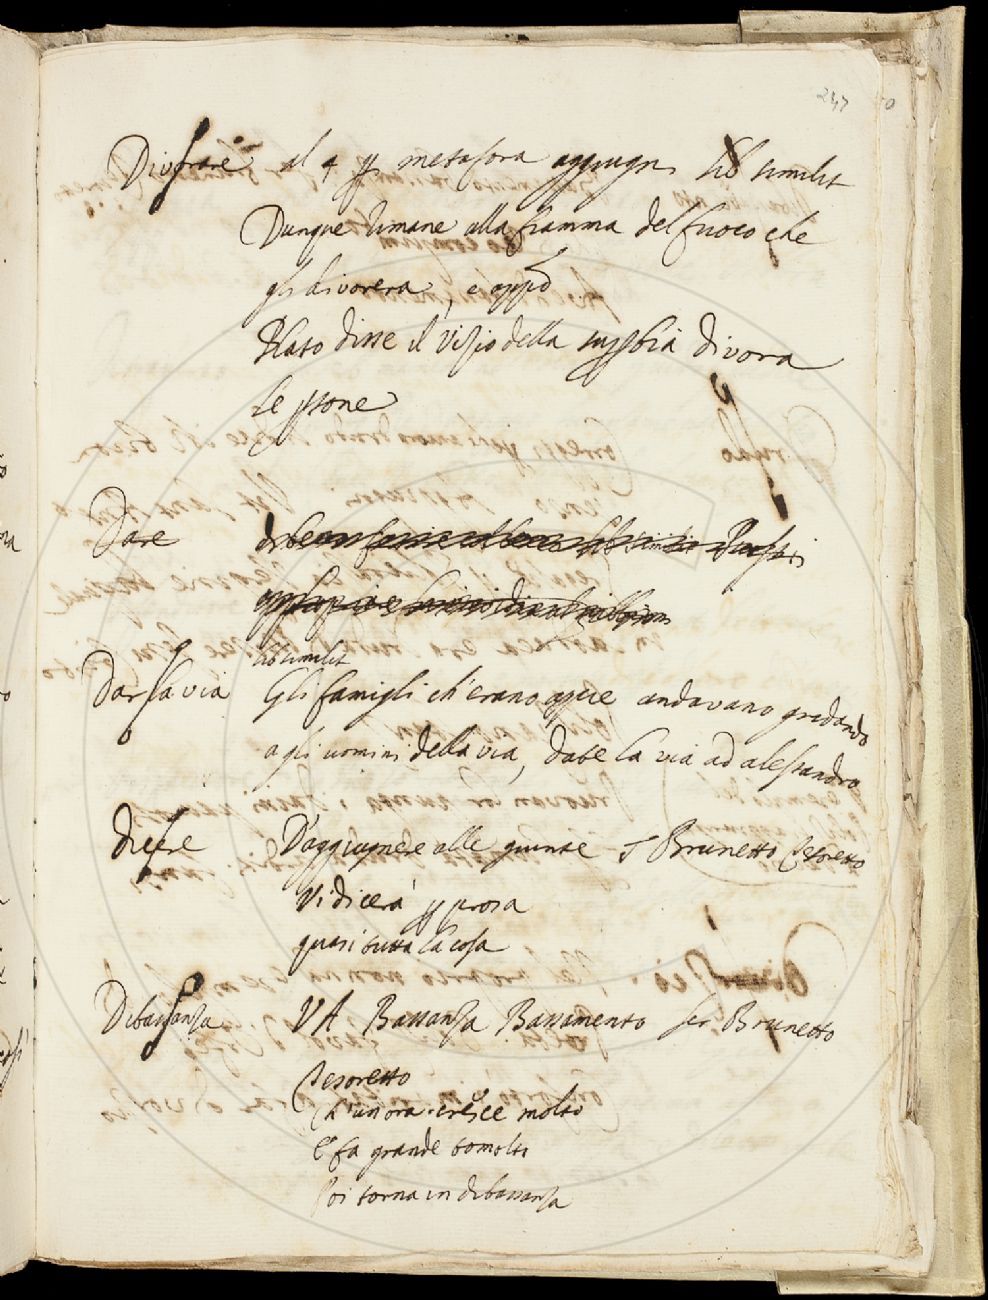 247
Divorare al 4 p metafora aggiugni lib similit
Dunque rimane alla fiamma del fuoco che
gli divorera, e appo
Plato disse il vizio della superbia divora
le persone
Dare
lib similit
Dar la via Gli famigli ch'erano appie andavano gridando
agli uomini della via, date la via ad alessandro
dicere D'aggiugnere alle giunte S Brunetto Tesoretto
Vi dicerà per prosa
quasi tutta la cosa
Dibassanza V A Bassanza Bassamento ser Brunetto
Tesoretto
Ch'un'ora cresce molto
E fa grande tomolti
Poi torna in dibassanza